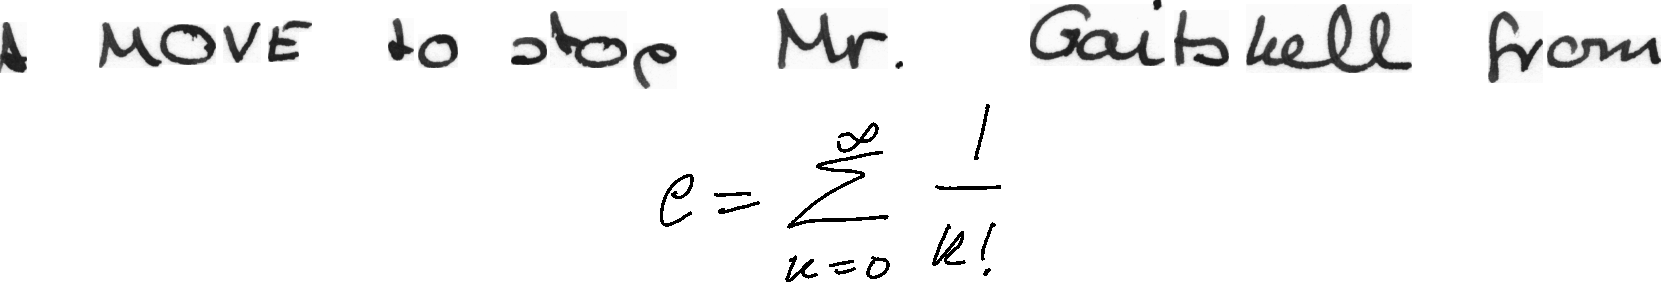 A MOVE to stop Mr. Gaitskell from
e = \sum_{k=0}^{\infty} \frac{1}{k!}